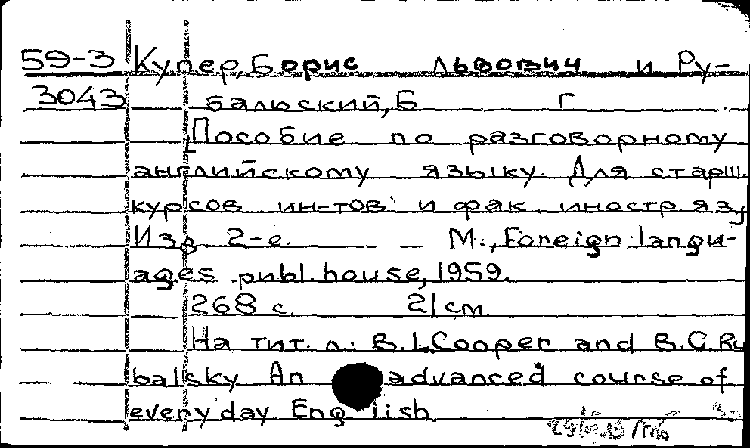 59-3 Купер, Борис Львович и Ру-
3043 бальский, Б Г
Пособие по разговорному
английскому языку. Для старш.
курсов ин-тов и фак. иностр. яз.
Изд 2-е. М., Foreign langu-
ages publ. house, 1959.
268 с. 21 см
На тит. л.: B. L. Cooper and B. G. Ru
balsky An advanced course of
everyday English